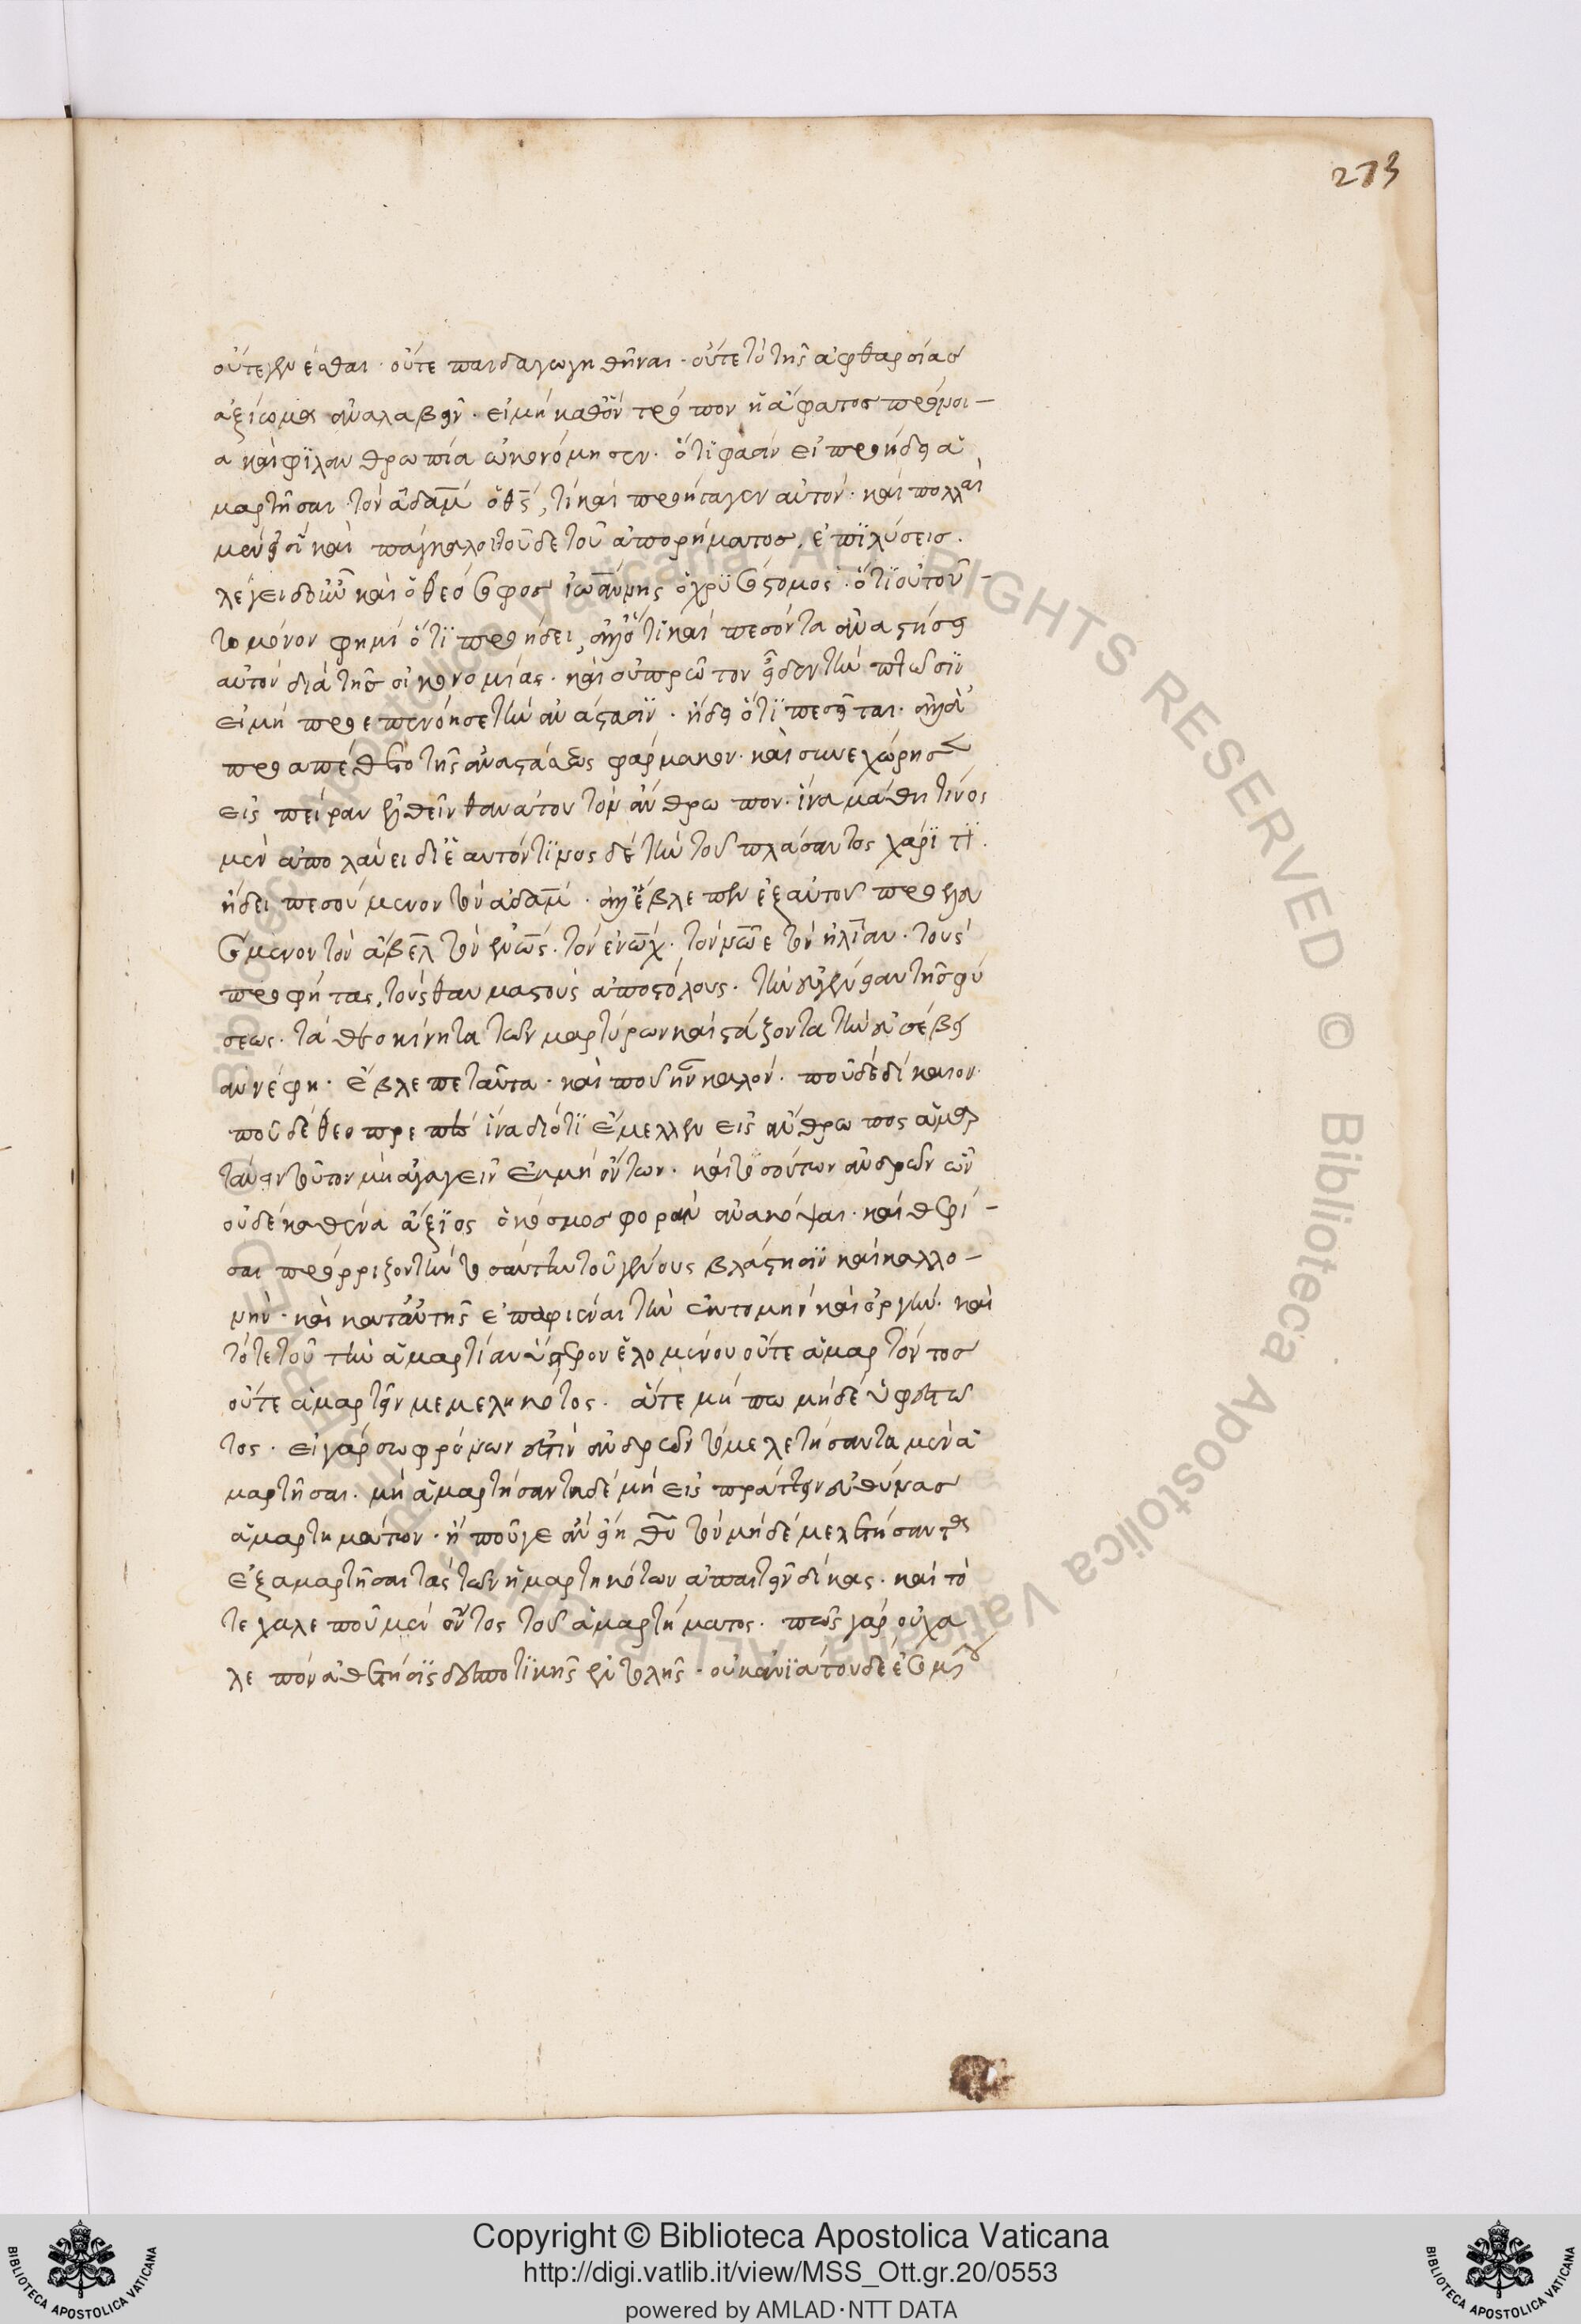 273
οὔτε γενέσθαι · οὔτε παιδαγωγηθῆναι · οὔτε τὸ τῆς ἀφθαρσίας
ἀξίωμα ἀναλαβεῖν · εἰ μὴ καθ' ὃν τρόπον ἡ ἄφατος πρόνοι-
α καὶ φιλανθρωπία ᾠκονόμησεν · ὅτι φασὶν εἰ προήδει ἁ
μαρτῆσαι τὸν ἀδὰμ ὁ θς, τί καὶ προήγαγεν αὐτόν · καὶ πολλαὶ
μὲν εἰσὶ καὶ πάγκαλοι τοῦδε τοῦ ἀπορήματος, ἐπιλύσεις ·
λέγει δ' οὖν καὶ ὁ θεόσοφος ἰωάννης ὁ χρυσόστομος · ὅτι οὐ τοῦ-
το μόνον φημὶ ὅτι προήδει, ἀλλ' ὅτι καὶ πεσόντα ἀναστήσει
αὐτὸν διὰ τῆς οἰκονομίας · καὶ οὐ πρῶτον εἶδεν τὴν πτῶσιν
εἰ μὴ προεπενόησε τὴν ἀνάστασιν · ἤδει ὅτι πεσεῖται · ἀλλὰ
προαπέθετο τῆς ἀναστάσεως φάρμακον · καὶ συνεχώρησεν
εἰς πεῖραν ἐλθεῖν θανάτου τὸν ἄνθρωπον · ἵνα μάθῃ τίνος
μὲν ἀπολαύει δι' ἑαυτὸν τίνος δὲ τὴν τοῦ πλάσαντος χάριτι ·
ᾔδει πεσούμενον τὸν ἀδάμ · ἀλλ' ἔβλεπεν ἐξ αὐτοῦ προελευ
σόμενον τὸν ἄβελ τὸν ἐνώς · τὸν ἐνώχ · τὸν νῶε τὸν ἠλίαν · τοὺς
προφήτας, τοὺς θαυμαστοὺς ἀποστόλους · τὴν εὐγένειαν τῆς φύ
σεως · τὰ θεοκίνητα τῶν μαρτύρων καὶ στάζοντα τὴν εὐσέβει
αν νέφη · ἔβλεπε ταῦτα · καὶ ποῦ ἦν καλόν · ποῦ δὲ δίκαιον
ποῦ δὲ θεοπρεπὲς ἵνα διότι ἔμελλεν εἷς ἄνθρωπος ἁμαρ
τάνειν τοῦτον μὴ ἀγαγεῖν ἐκ μὴ ὄντων · καὶ τοσούτων ἀνδρῶν ὧν
οὐδὲ καθένα ἄξιος ὁ κόσμος φορὰν ἀνακόψαι · καὶ θερί-
σαι πρόρριζον τὴν τοσαύτην τοῦ γένους βλάστησιν καὶ καλλο-
νήν · καὶ κατ' αὐτῆς ἐπαφιέναι τὴν ἐκτομὴν καὶ ὀργήν · καὶ
τότε τοῦ τὴν ἁμαρτίαν ὕστερον ἑλομένου οὔτε ἁμαρτόντος
οὔτε ἁμαρτεῖν μεμεληκότος · ἅτε μήπω μηδὲ ὑφεστῶ
τος · εἰ γὰρ σωφρόνων ἐστὶν ἀνδρῶν τὸ μελετήσαντα μὲν ἁ
μαρτῆσαι · μὴ ἁμαρτήσαντα δὲ μὴ εἰσπράττειν εὐθύνας
ἁμαρτημάτων · ἦ ποῦ γε ἂν εἴη θυ τὸν μηδὲ μελετήσαντα
ἐξαμαρτῆσαι τὰς τῶν ἡμαρτηκότων ἀπαιτεῖν δίκας · καὶ τό
τε χαλεποῦ μὲν ὄντος τοῦ ἁμαρτήματος · πῶς γὰρ οὐ χα
λεπὸν ἀθέτησις δεσποτικῆς ἐντολῆς · οὐκ ἀνιάτου δὲ
Copyright © Biblioteca Apostolica Vaticana
http://digi.vatlib.it/view/MSS_Ott.gr.20/0553
powered by AMLAD·NTT DATA